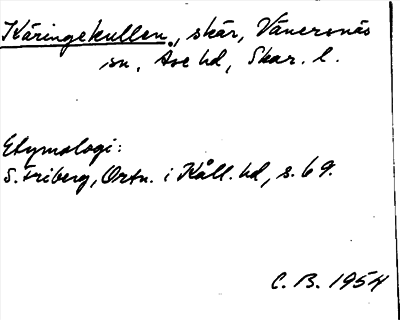 Käringekullen, skär, Vänersnäs
sn, Åse hd, Skar. l.
Etymologi:
S. Friberg, Ortn. i Kåll. hd, s. 69.
C. B. 1954